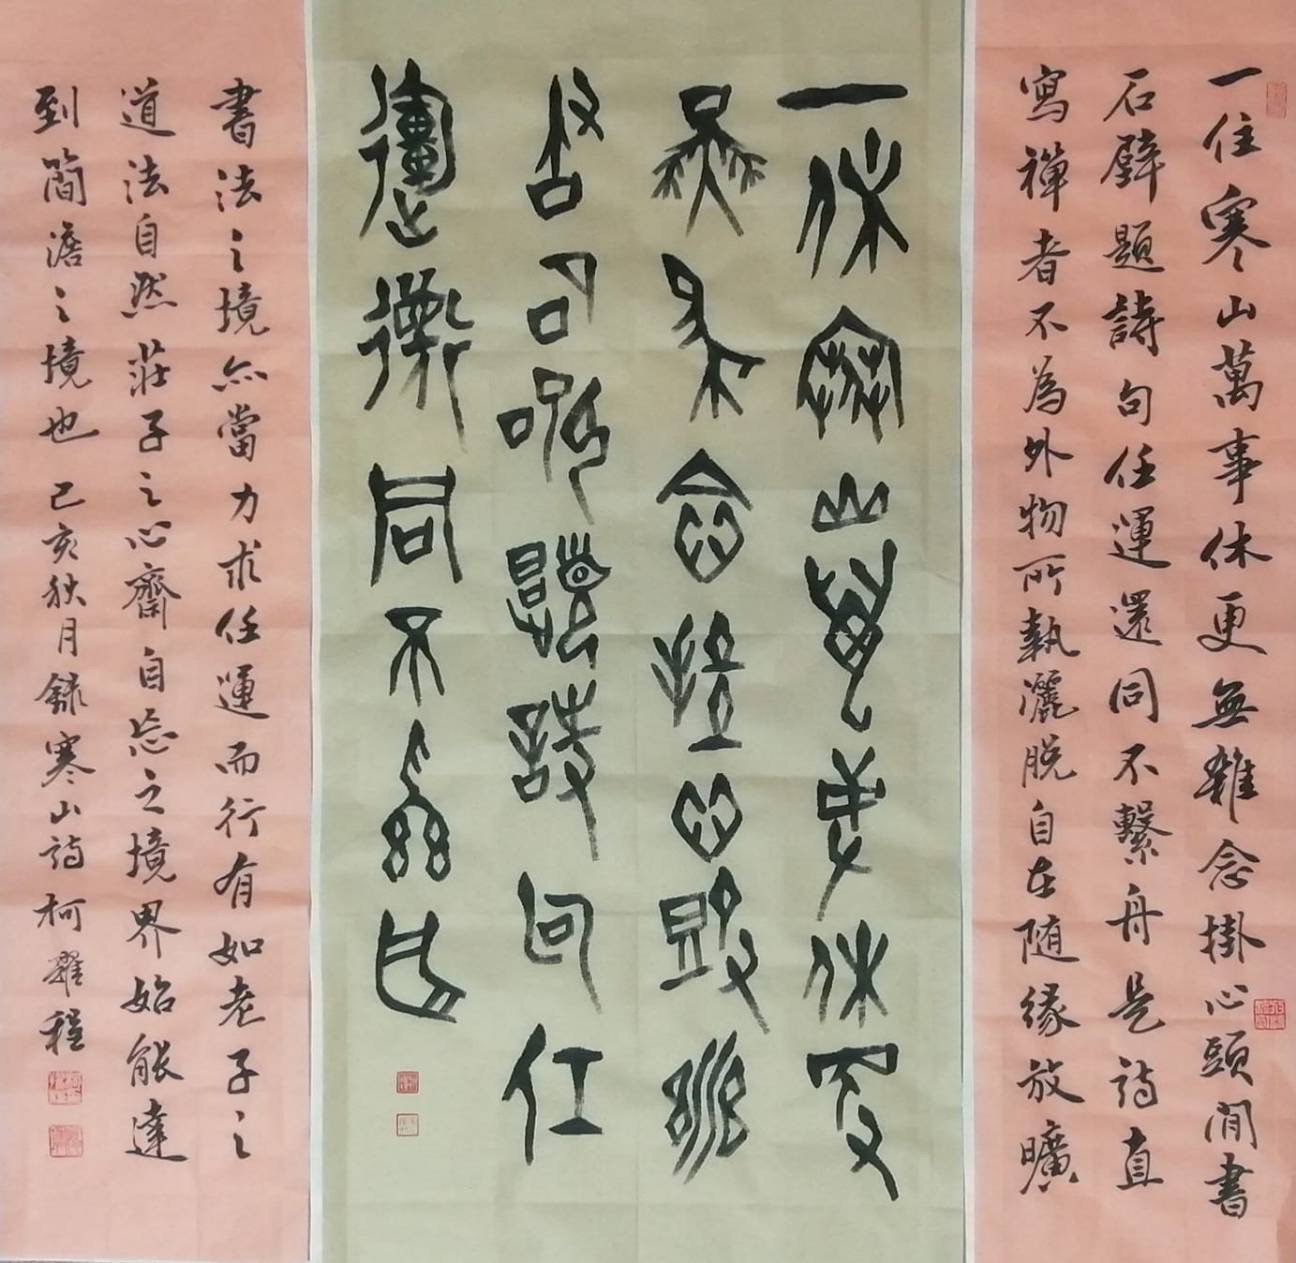 一住寒山萬事休更無雜念掛心頭閒書
石壁題詩句任運還同不繫舟是詩直
寫禪者不為外物所執灑脫自在随緣放曠
一住寒山萬事休更
無雜念掛心頭閒
書石壁題詩句任
運還同不繫舟
書法之境亦當力求任運而行有如老子之
道法自然莊子之心齋自忘之境界始能達
到簡澹之境也 己亥秋月錄寒山詩柯耀程